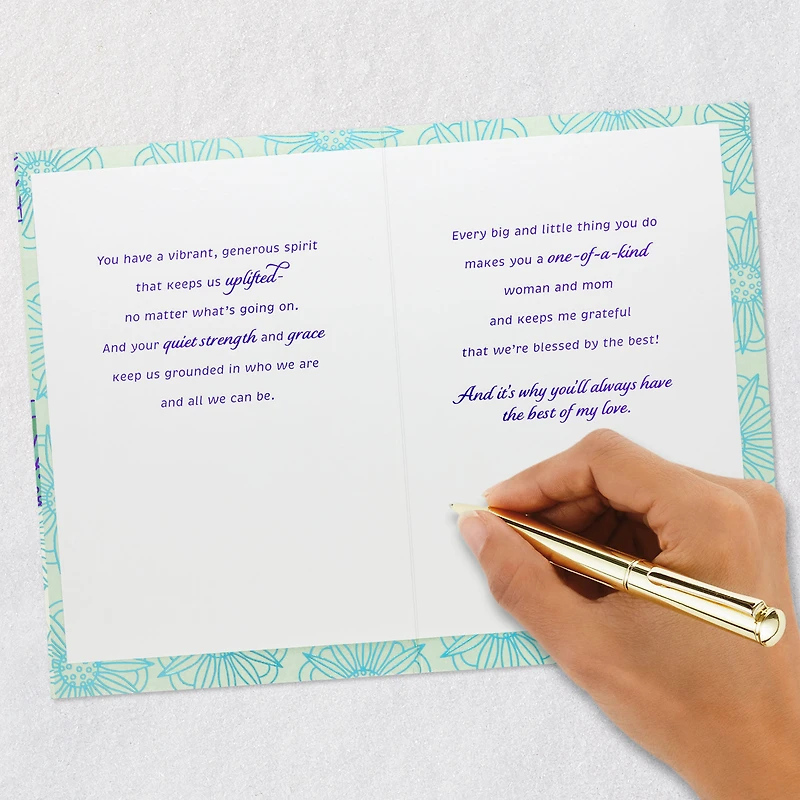 You have a vibrant, generous spirit
that keeps us uplifted–
no matter what's going on.
And your quiet strength and grace
keep us grounded in who we are
and all we can be.
Every big and little thing you do
makes you a one-of-a-kind
woman and mom
and keeps me grateful
that we're blessed by the best!
And it's why you'll always have
the best of my love.